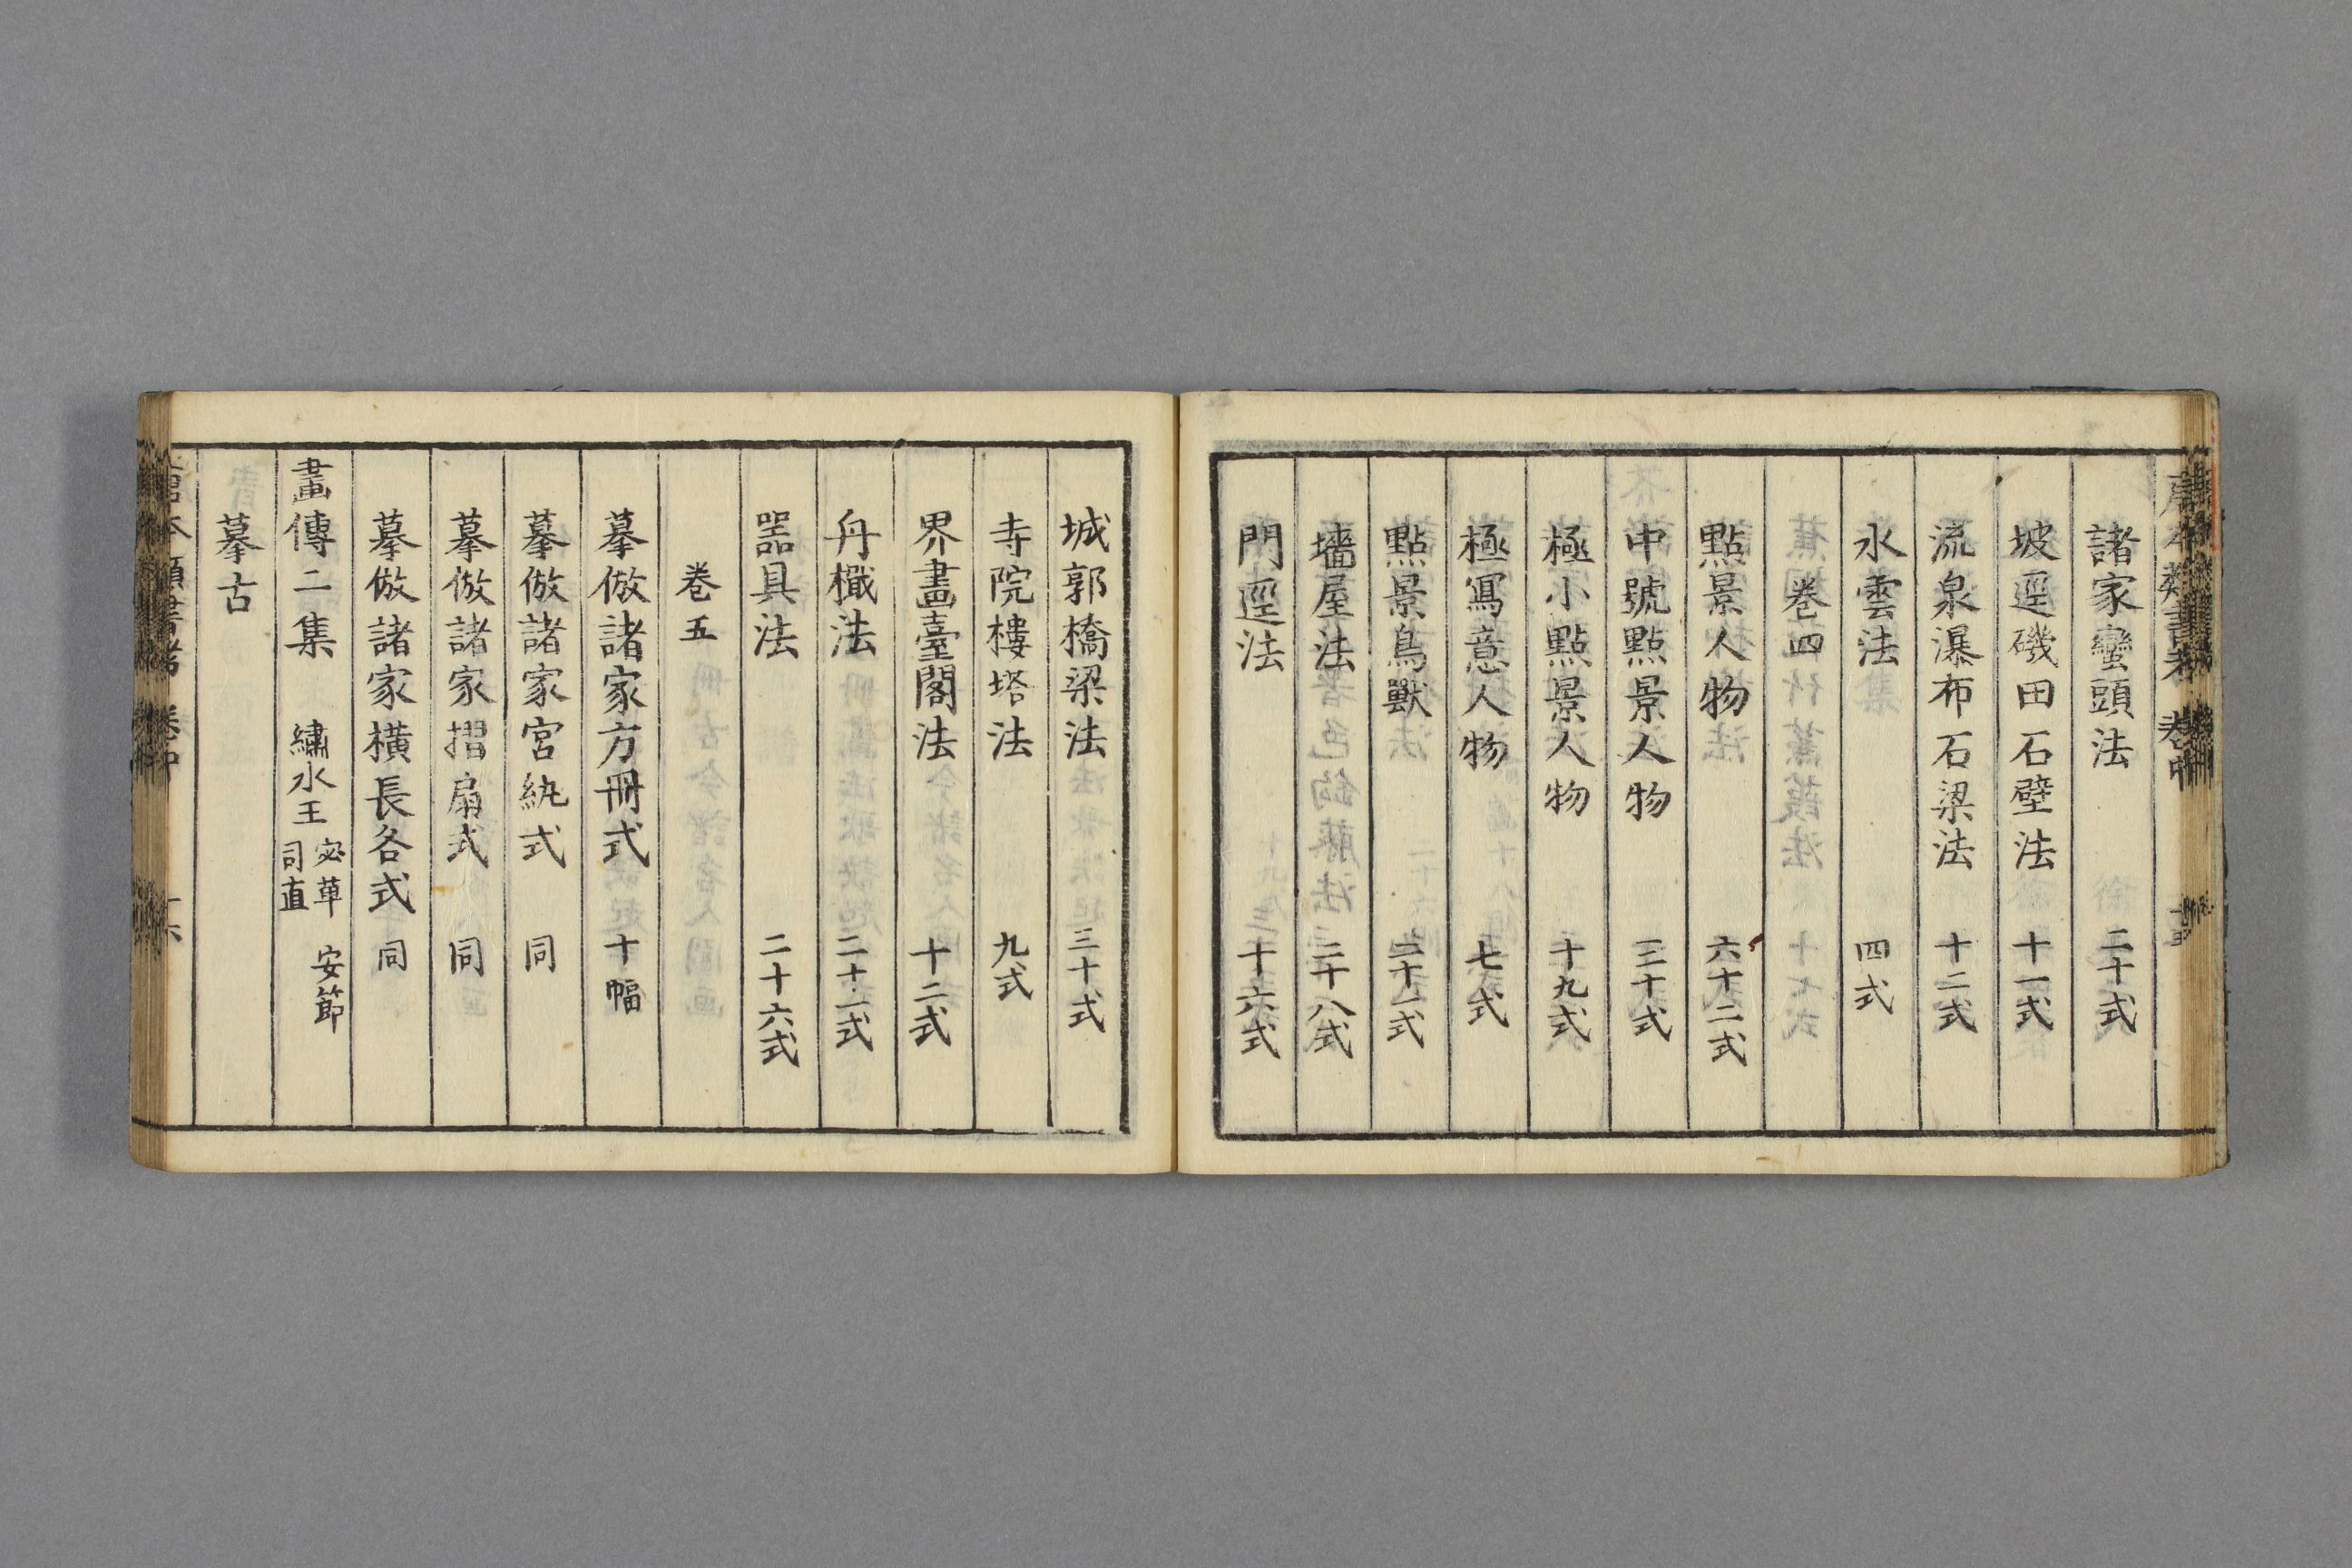 諸家巒頭法 二十式
坡逕磯田石壁法 十一式
流泉瀑布石梁法 十二式
水雲法 四式
卷四
點景人物 六十二式
中號點景人物 三十式
極小點景人物 十九式
極寫意人物 七式
點景鳥獸 二十一式
墻屋法 二十八式
門逕法 十六式
城郭橋梁法 三十式
寺院樓塔法 九式
界畫臺閣法 十二式
舟檝法 二十一式
器具法 二十六式
卷五
摹倣諸家方冊式 十幅
摹倣諸家宮紈式 同
摹倣諸家摺扇式 同
摹倣諸家橫長各式 同
畫傳二集 繡水王 宓草 司直 安節
摹古